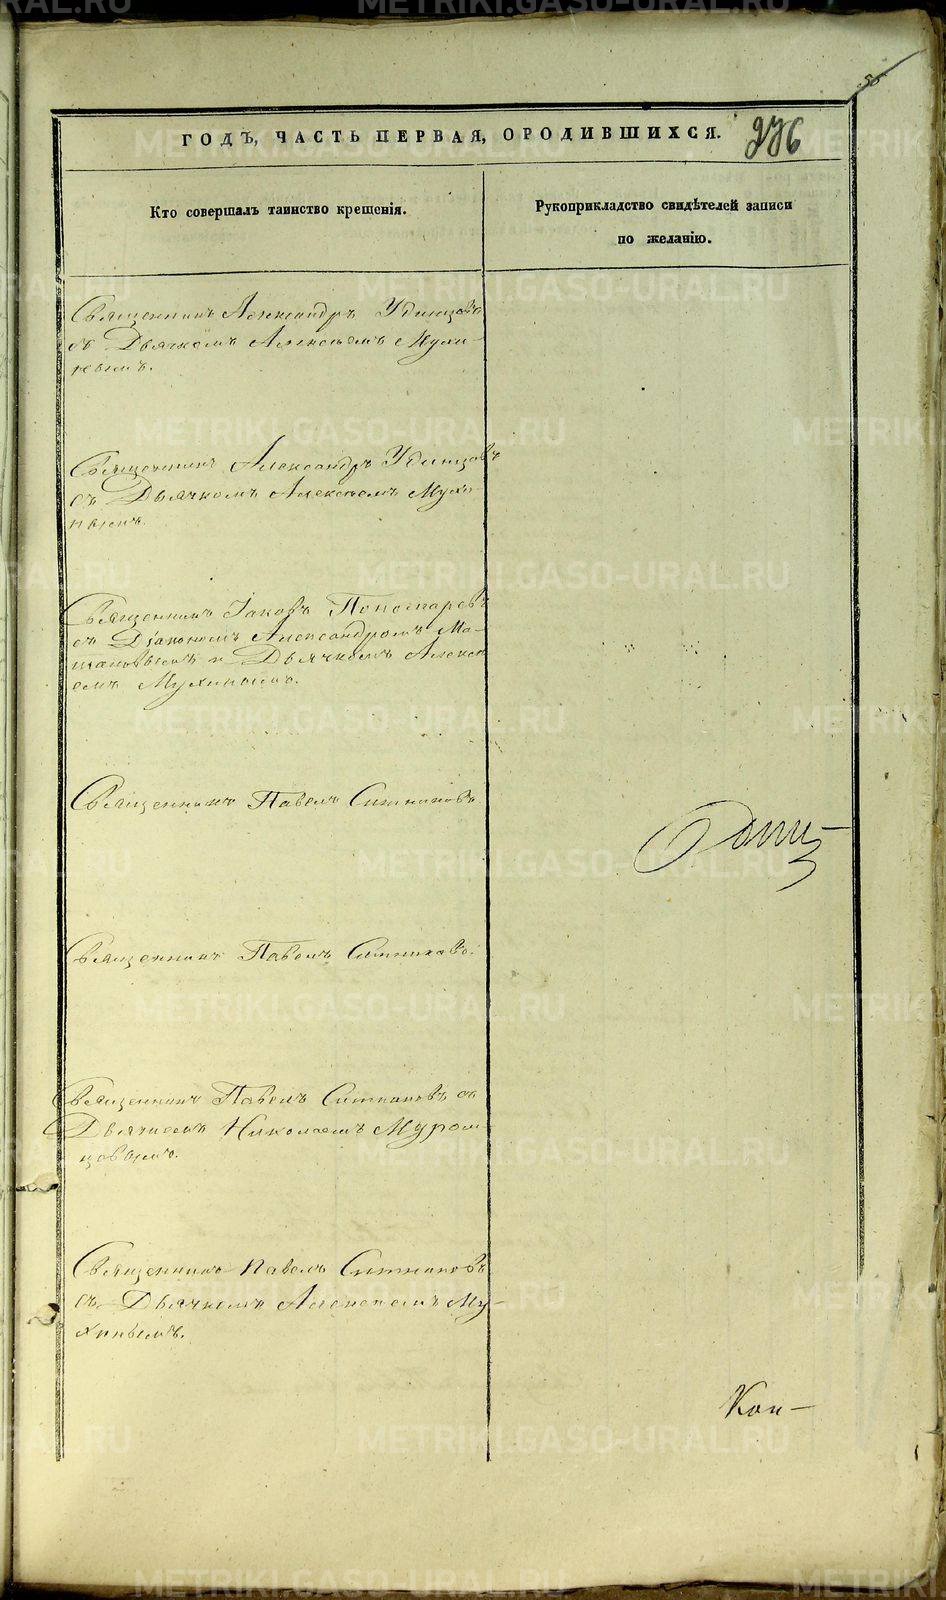 56
ГОДЪ, ЧАСТЬ ПЕРВАЯ, ОРОДИВШИХСЯ. 276
Кто совершалъ таинство крещенія.
Рукоприкладство свидѣтелей записи
по желанію.
Священникъ Александръ Удинцовъ
съ Дьячкомъ Алексѣемъ Мухи-
нымъ.
Священникъ Александръ Удинцовъ
съ Дьячкомъ Алексѣемъ Мухи
нымъ.
Священникъ Іаковъ Пономаревъ
съ Діакономъ Александромъ Ма-
и Дьячкомъ Алексѣ
емъ Мухинымъ.
Священникъ Павелъ Ситниковъ
Священникъ Павелъ Ситниковъ.
Священникъ Павелъ Ситниковъ съ
Дьячкомъ Николаемъ Муром
цовымъ.
Священникъ Павелъ Ситниковъ
съ Дьячкомъ Алексѣемъ Му-
хинымъ.
Кон-
METRIKI.GASO-URAL.RU